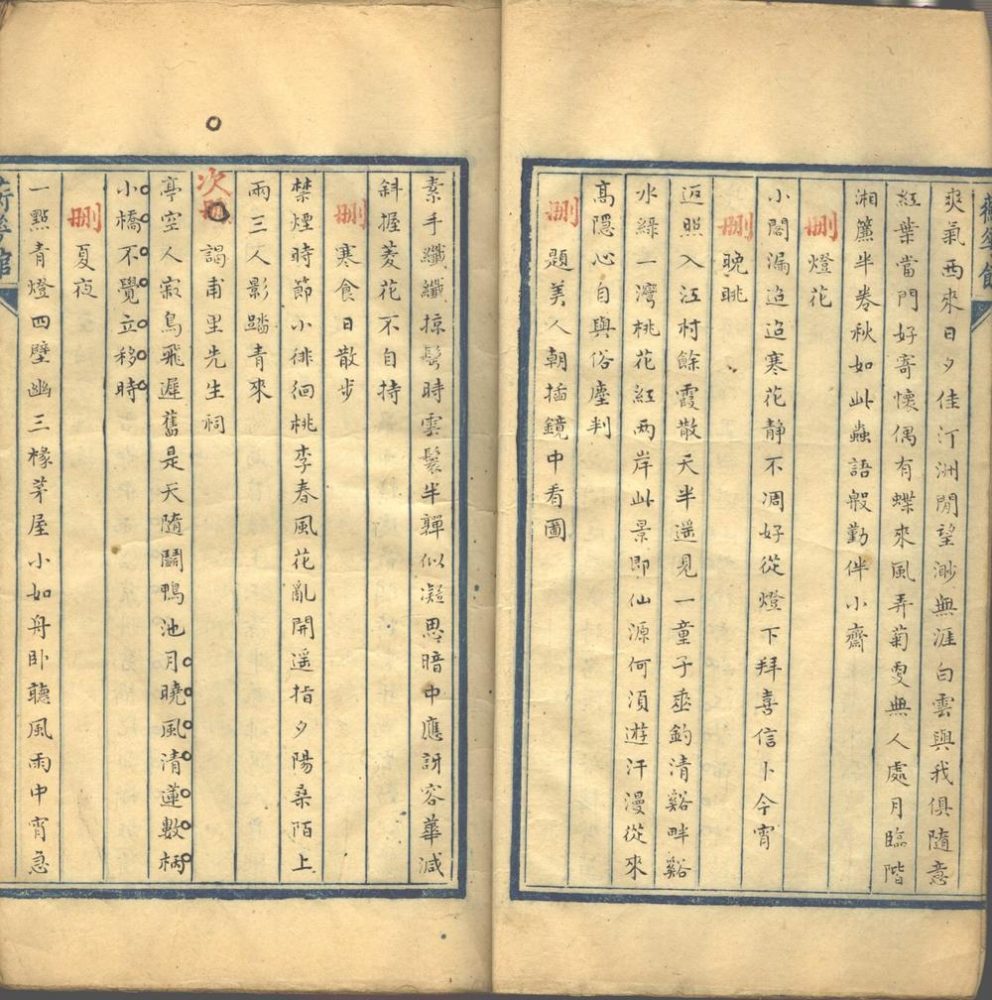 爽氣西來日夕佳汀洲閒望渺無涯白雲與我俱隨意
紅葉當門好寄懷偶有蝶來風弄菊更無人處月臨階
湘簾半卷秋如此蟲語殷勤伴小齋
刪 燈花
小閣漏迢迢寒花静不凋好從燈下拜喜信卜今宵
刪 晚眺
返照入江村餘霞散天半遥見一童子垂釣清谿畔谿
水綠一灣桃花紅兩岸此景即仙源何須遊汗漫從來
高隱心自與俗塵判
刪 題美人朝插鏡中看圖
素手纖纖掠鬓時雲鬟半嚲似凝思暗中應訝容華減
斜握菱花不自持
刪 寒食日散步
禁煙時節小徘徊桃李春風花亂開遥指夕陽桑陌上
兩三人影踏青來
次 謁甫里先生祠
亭空人寂鳥飛遲舊是天隨鬭鴨池月曉風清蓮數柄
小橋不覺立移時
刪 夏夜
一點青燈四壁幽三椽茅屋小如舟卧聽風雨中宵急